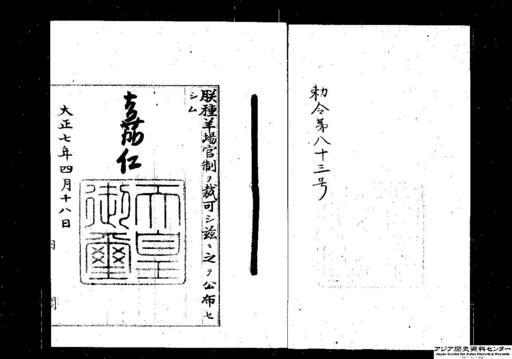 勅令第八十三号
朕種羊場官制ヲ裁可シ玆ニ之ヲ公布セ
シム
嘉仁
天皇御璽
大正七年四月十八日
アジア歴史資料センター
Japan Center for Asian Historical Records